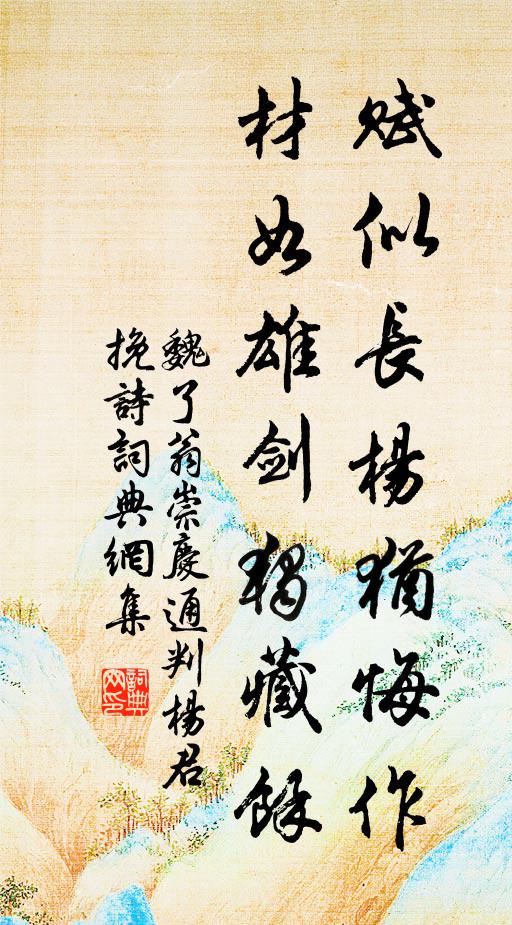 賦似長楊猶悔作
材如雄劍獨藏餘
魏了翁崇慶通判楊君
挽詩詞典網集
詞典網印